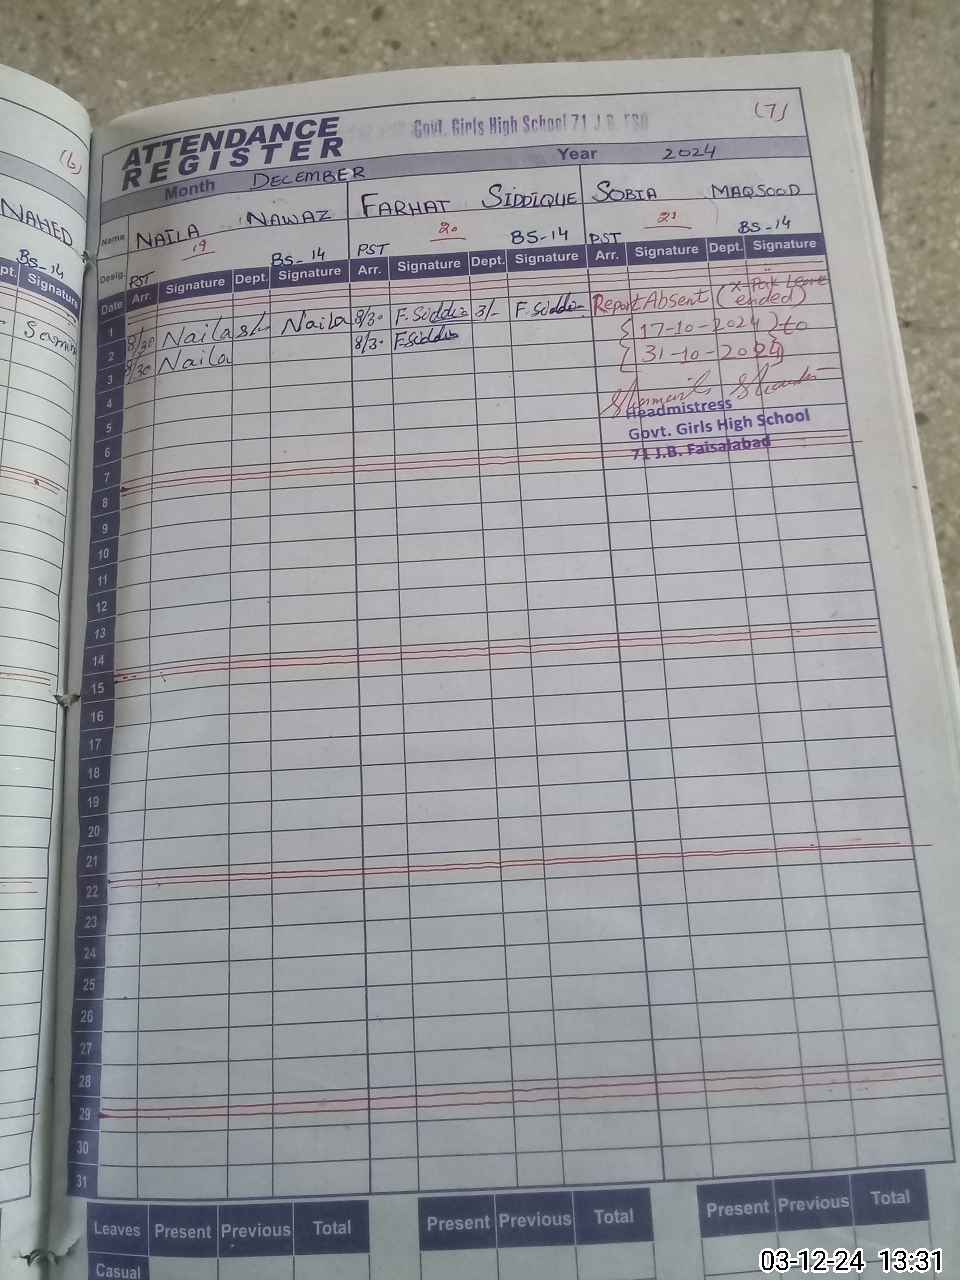 (6)
NAHED
BS-14
Dept. Signature
ATTENDANCE
REGISTER
Govt. Girls High School 71 J.B. FSD
(7)
Month DECEMBER Year 2024
Name NAILA NAWAZ FARHAT SIDDIQUE SOBIA MAQSOOD
19 20 21
Desig. PST BS-14 PST BS-14 PST BS-14
Date Arr. Signature Dept. Signature Arr. Signature Dept. Signature Arr. Signature Dept. Signature
1
2 8/30 Naila Naila 8/30 F.Siddiq 3/- F.Siddiq Report Absent (X-Pak Leave ended)
3 8/30 Naila 8/30 F.Siddiq {17-10-2024} to
{31-10-2024}
4
5
6
7
8
9
10
11
12
13
14
15
16
17
18
19
20
21
22
23
24
25
26
27
28
29
30
31
Headmistress
Govt. Girls High School
71 J.B. Faisalabad
Leaves Present Previous Total Present Previous Total Present Previous Total
Casual
03-12-24 13:31